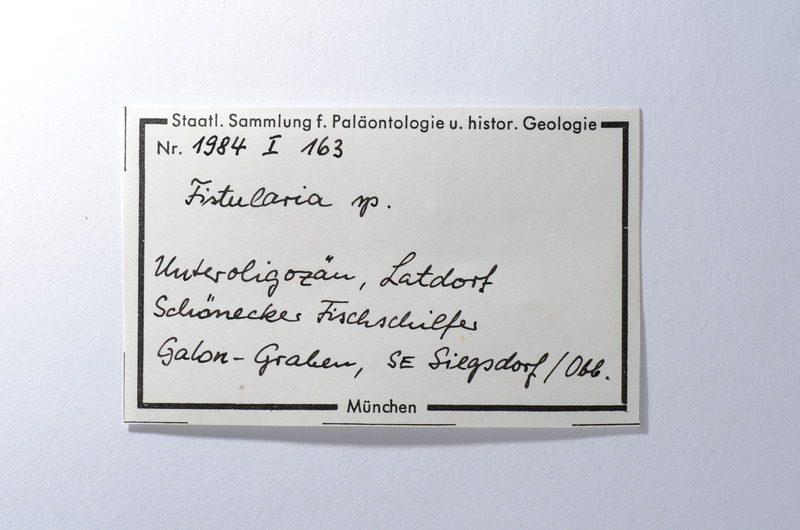 Staatl. Sammlung f. Paläontologie u. histor. Geologie
Nr. 1984 I 163
Fistularia sp.
Unteroligozän, Latdorf
Schönecker Fischschilfer
Galon-Graben, SE Siegsdorf / Obb.
München